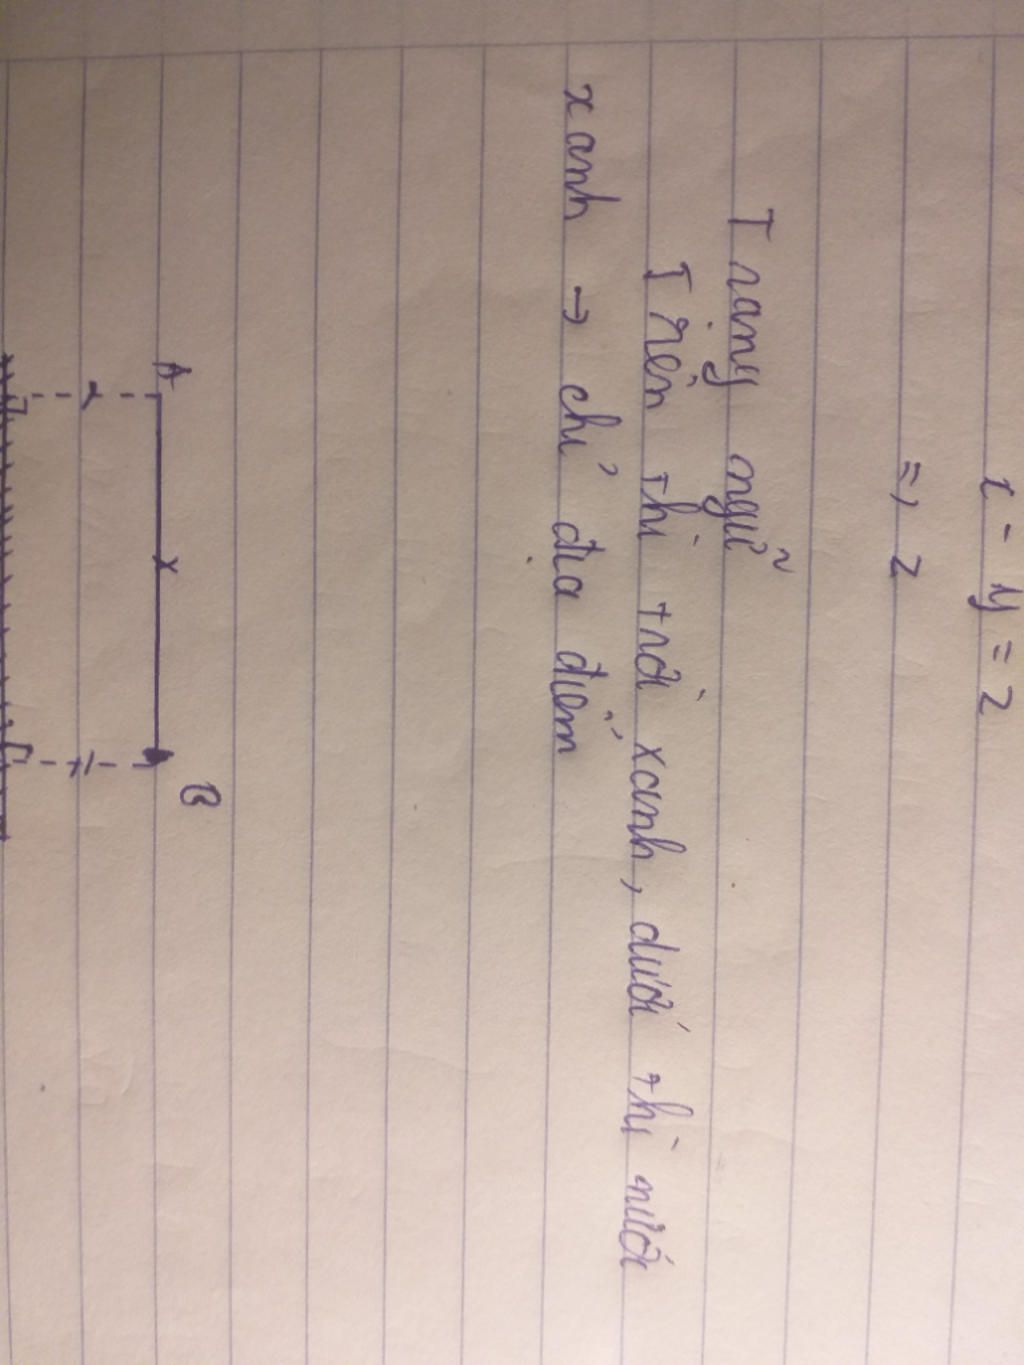 x - y = 2
=, 2
Trạng ngữ
Trên thì trời xanh, dưới thì nước
xanh → chỉ địa điểm
A
B